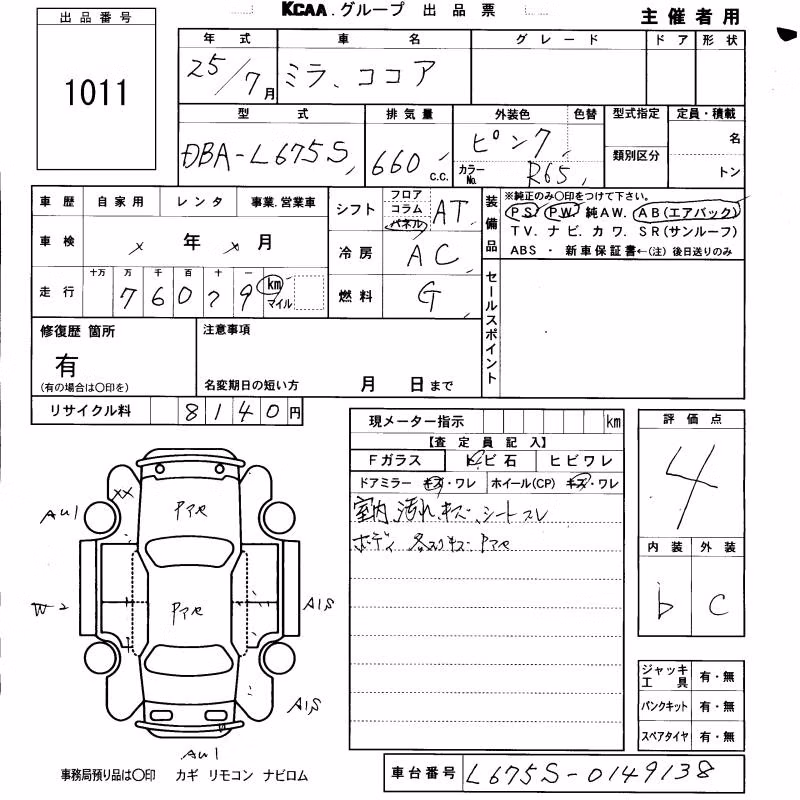 KCAA.グループ 出品票
主催者用
出品番号
1011
年式 車名 グレード ドア 形状
25/7月 ミラ、ココア
型式 排気量 外装色 色替 型式指定 定員・積載
DBA-L675S 660 c.c. ピンク
カラーNo. R65
類別区分
名
トン
車歴 自家用 レンタ 事業.営業車
シフト フロア コラム パネル AT
装備品
※純正のみ〇印をつけて下さい。
PS. PW. 純AW. AB(エアバック)
TV. ナビ. カワ. SR(サンルーフ)
ABS ・ 新車保証書←(注) 後日送りのみ
車検 × 年 × 月
冷房 AC
走行 十万 万 千 百 十 一
7 6 0 ? 9 km マイル
燃料 G
セールスポイント
修復歴 箇所
有
(有の場合は〇印を)
注意事項
名変期日の短い方 月 日まで
リサイクル料 8140円
現メーター指示 km
【査定員記入】
Fガラス トビ石 ヒビワレ
ドアミラー キズ・ワレ ホイール(CP) キズ・ワレ
室内 汚れ キズ、シートスレ
ボディ 各スリキズ Pアセ
評価点
4
内装 外装
b c
XX
AU1
Pアセ
W2
Pアセ
A1S
A1S
AU1
ジャッキ工具 有・無
パンクキット 有・無
スペアタイヤ 有・無
事務局預り品は〇印 カギ リモコン ナビロム
車台番号 L675S-0149138